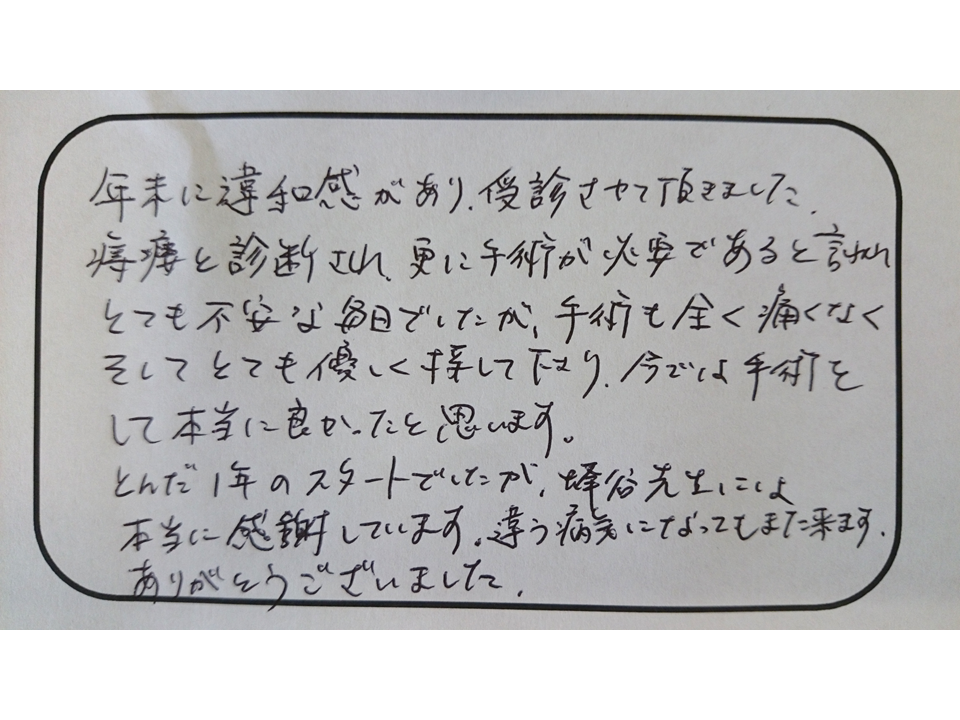 年末に違和感があり、受診させて頂きました。
痔瘻と診断され、更に手術が必要であると言われ
とても不安な毎日でしたが、手術も全く痛くなく
そしてとても優しく接して下さり、今では手術を
して本当に良かったと思います。
とんだ1年のスタートでしたが、蜂谷先生には
本当に感謝しています。違う病気になってもまた来ます。
ありがとうございました。